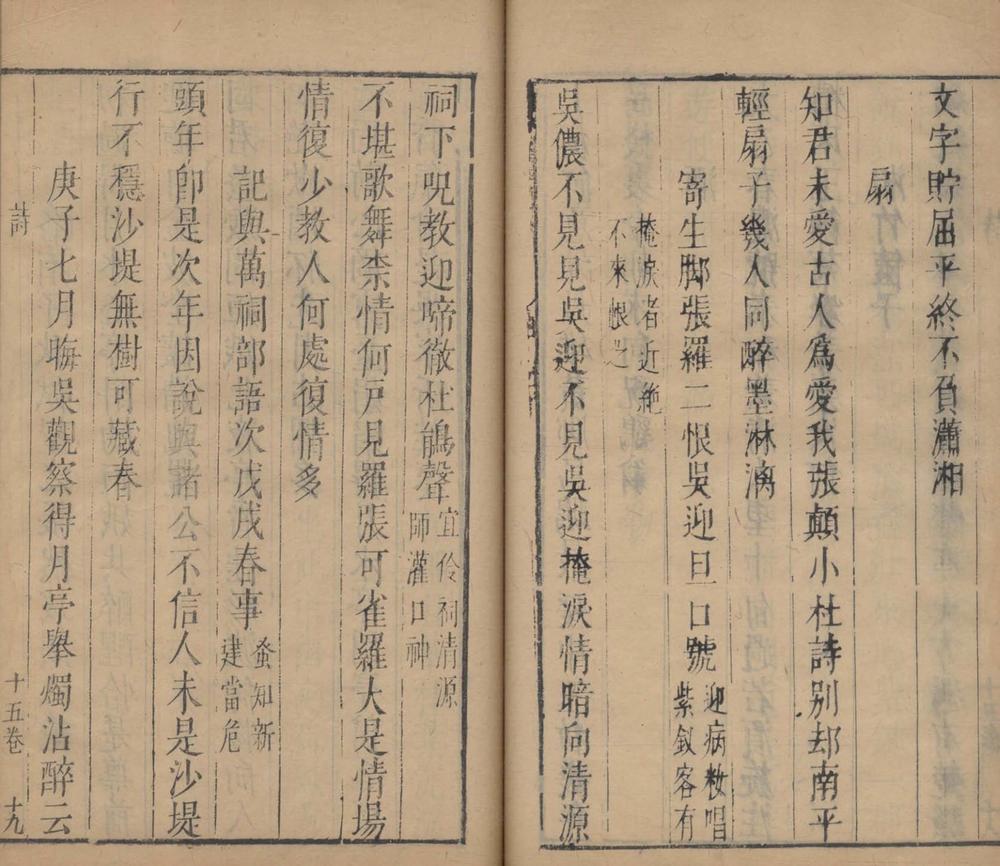 文字貯屈平終不負瀟湘
扇
知君未愛古人爲愛我張顛小杜詩别却南平
輕扇子幾人同醉墨淋漓
寄生脚張羅二恨吳迎旦口號
迎病妝唱
紫釵客有
掩淚者近絶
不來恨之
吳儂不見見吳迎不見吳迎掩淚情暗向清源
祠下咒教迎啼徹杜鵑聲
宜伶祠清源
師灌口神
不堪歌舞柰情何戸見羅張可雀羅大是情場
情復少教人何處復情多
記與萬祠部語次戊戌春事
蚤知新
建當危
頭年卽是次年因説與諸公不信人未是沙堤
行不穩沙堤無樹可藏春
庚子七月晦吳觀察得月亭舉燭沾醉云
詩
十五卷
十九